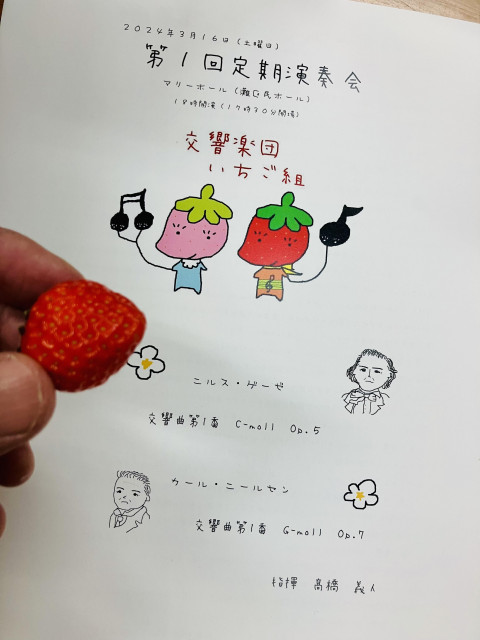 2024年3月16日(土曜日)
第1回定期演奏会
マリーホール(灘区民ホール)
18時開演(17時30分開場)
交響楽団
いちご組
ニルス・ゲーゼ
交響曲第1番 C-moll Op.5
カール・ニールセン
交響曲第1番 G-moll Op.7
指揮 高橋 義人